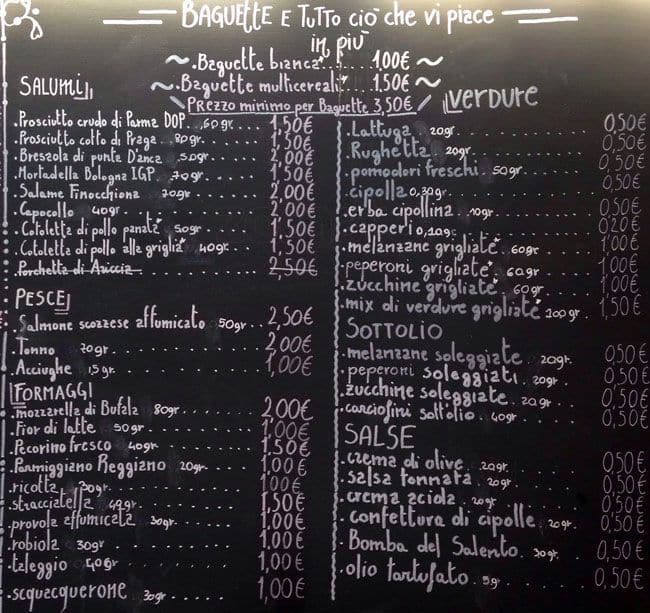 BAGUETTE E TUTTO CIÒ CHE VI PIACE
IN PIÙ
.Baguette bianca* ..... 1.00€
.Baguette multicereali* ..... 1.50€
PREZZO MINIMO PER BAGUETTE 3,50€
SALUMI
.Prosciutto crudo di Parma DOP. 60gr. 1,50€
.Prosciutto cotto di Praga. 80gr. 1,50€
.Bresaola di punta D'anca 50gr. 2,00€
.Mortadella Bologna IGP. 70gr. 1,50€
.Salame Finocchiona 70gr. 2,00€
.Capocollo 40gr. 2,00€
.Cotoletta di pollo panata* 50gr. 1,50€
.Cotoletta di pollo alla griglia* 40gr. 1,50€
.Porchetta di Ariccia 2,50€
PESCE
.Salmone scozzese affumicato 50gr.. 2,50€
.Tonno 70gr. 2,00€
.Acciughe 15gr. 1,00€
FORMAGGI
.mozzarella di Bufala 80gr. 2,00€
.Fior di latte 50gr. 1,00€
.Pecorino fresco 40gr. 1,50€
.Parmiggiano Reggiano 20gr. 1,00€
.ricotta 30gr. 1,00€
.stracciatella* 1,50€
.provola affumicata 30gr. 1,00€
.robiola 30gr 1,00€
.taleggio 40gr 1,00€
.scquacquerone 30gr 1,00€
VERDURE
.Lattuga 20gr. 0,50€
.Rughetta 20gr. 0,50€
.pomodori freschi 50gr 0,50€
.cipolla 0,30gr. 0,50€
.erba cipollina 10gr 0,50€
.capperi 0,10gr. 0,20€
.melanzane grigliate* 60gr 1,00€
.peperoni grigliate* 60gr 1,00€
.zucchine grigliate* 60gr 1,00€
.mix di verdure grigliate* 100gr. 1,50€
SOTTOLIO
.melanzane soleggiate 20gr. 0,50€
.peperoni soleggiati 20gr. 0,50€
.zucchine soleggiate 20gr. 0,50€
.carciofini sott'olio 40gr 0,50€
SALSE
.crema di olive 20gr. 0,50€
.salsa tonnata 20gr. 0,50€
.crema acida 20gr 0,50€
.confettura di cipolle 20gr. 0,50€
.Bomba del Salento. 30gr. 0,50€
.olio tartufato 5gr 0,50€